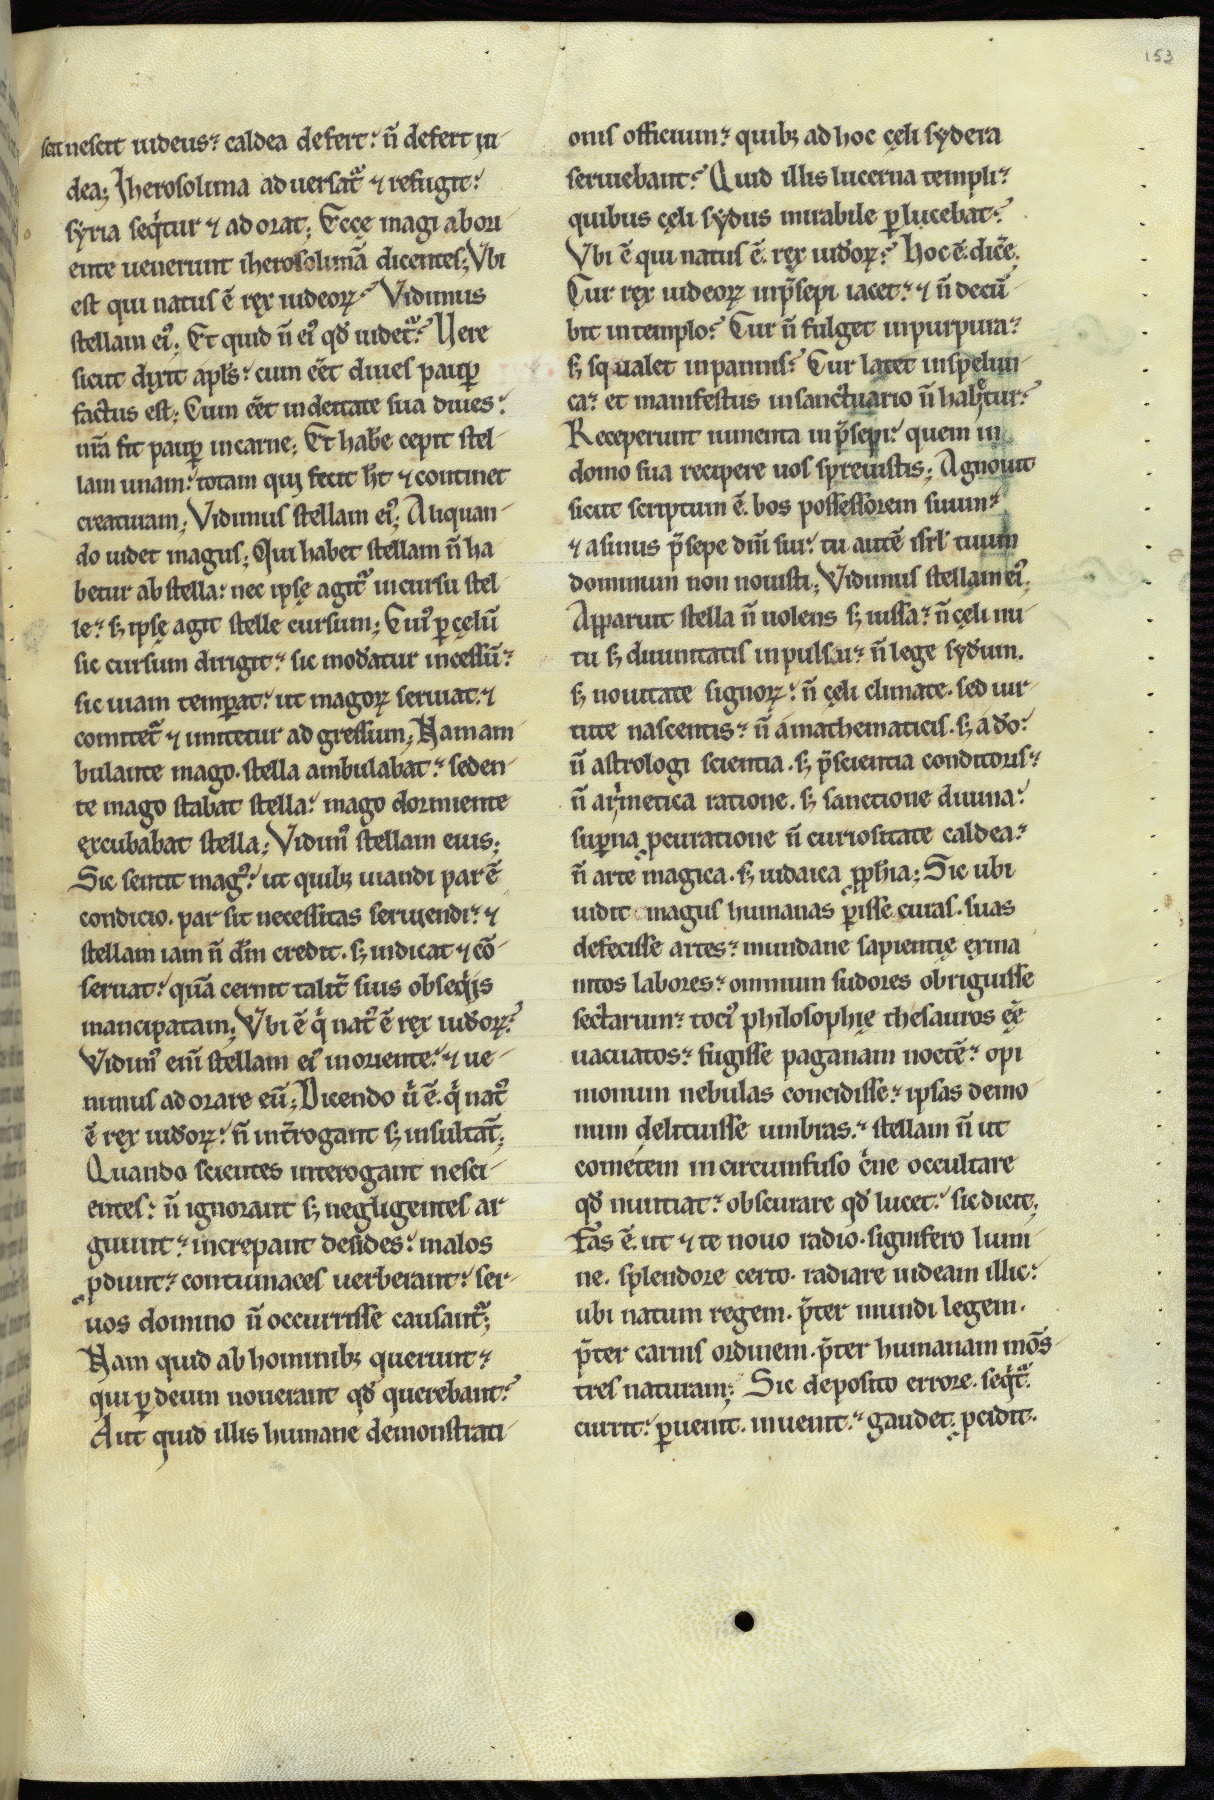 153
scit nescit iudeus? caldea defert: n̄ defert iu
dea; Iherosolima aduersat᷑ ⁊ refugit:
syria seq̇tur ⁊ adorat; Eccę magi abori
ente uenerunt iherosolimā dicentes; Vbi
est qui natus ē rex iudeoꝝ? Vidimus
stellam ei᷒; Et quid n̄ ei᷒ qd̄ uidet᷑? Vere
sicut dixit apl̄s: cum eēt diues paup̲
factus est; Cum eēt in deitate sua diues:
nr̄a fit paup̲ in carne; Et habe᷑ cepit stel
lam unam: totam qui fecit h̄t ⁊ continet
creaturam; Vidimus stellam ei᷒; Aliquan
do uidet magus; Qui habet stellam n̄ ha
betur ab stella: nec ipse agit᷑ in cursu stel
le? sꝫ ipsę agit stelle cursum; Cui᷒ ꝑ cęlū
sic cursum dirigit? sic mod̄atur incessū?
sic uiam temꝑat: ut magoꝝ seruiat: ⁊
comitet᷑ ⁊ imitetur adgressum; Nam am
bulante mago. stella ambulabat? seden
te mago stabat stella: mago dormiente
excubabat stella; Vidim᷒ stellam eius;
Sic sentit mag᷒: ut quibꝫ uiandi par ē
condicio. par sit necessitas seruiendi? ⁊
stellam iam n̄ dm̄ credit. sꝫ iudicat ⁊ cō
seruat: quā cernit talit̄ suis obseq̇is
mancipatam; Vbi ē q̇ nat᷒ ē rex iud̄oꝝ?
Vidim᷒ eni̅ stellam ei᷒ in oriente: ⁊ ue
nimus adorare eū; Dicendo u̇ ē. q̇ nat᷒
ē rex iud̄oꝝ: n̄ int̄rogant sꝫ insultāt;
Quando scientes interogant nesci
entes: n̄ ignorant sꝫ negligentes ar
guunt? increpant desides: malos
ꝓdunt? contumaces uerberant: ser
uos domino n̄ occurrisse causant᷑;
Nam quid ab hominibꝫ querunt?
qui ꝑ deum nouerant qd̄ querebant?
Aut quid illis humane demonstrati
onis officium? quibꝫ ad hoc cęli sydera
seruiebant? Quid illis lucerna templi?
quibus cęli sydus mirabile ꝑlucebat?
Vbi ē qui natus ē. rex iud̄oꝝ? Hoc ē. dic̄e.
Cur rex iudeoꝝ in p̄sepi iacet? ⁊ n̄ decū
bit in templo? Cur n̄ fulget in purpura?
sꝫ squalet in pannis? Cur latet in spelun
ca? et manifestus in sanctuario n̄ habetur?
Receperunt iumenta in p̄sepi: quem in
domo sua recipere uos spreuistis; Agnouit
sicut scriptum ē. bos possessorem suum?
⁊ asinus p̄sepe dn̄i sui: tu autē isrl̄ tuum
dominum non nouisti; Vidimus stellam ei᷒.
Apparuit stella n̄ uolens sꝫ iussa? n̄ cęli nu
tu sꝫ diuinitatis inpulsu? n̄ lege syd̄um.
sꝫ nouitate signoꝝ: n̄ cęli climate. sed uir
tute nascentis? n̄ a mathematicis. sꝫ a do:
n̄ astrologi scientia. sꝫ p̄scientia conditoris?
n̄ arimetica ratione. sꝫ sanctione diuina:
suꝑna ꝓcuratione n̄ curiositate caldea?
n̄ arte magica. sꝫ iudaica ꝓph̄ia; Sic ubi
uidit magus humanas ꝑisse curas. suas
defecisse artes? mundane sapientię exina
nitos labores? omnium sudores obriguisse
sectarum? toci᷒ philosophię thesauros eē
uacuatos? fugisse paganam noctē? opi
nionum nebulas concidisse? ipsas demo
num delituisse umbras? stellam n̄ ut
cometem in circumfuso c̄ne occultare
qd̄ nuntiat? obscurare qd̄ lucet: sic dicit;
Fas ē. ut ⁊ te nouo radio. signifero lumi
ne. splendore certo. radiare uideam illic:
ubi natum regem. p̄ter mundi legem.
p̄ter carnis ordinem. p̄ter humanam mōs
tres naturam; Sic deposito errore. seq̇t᷑.
currit: ꝑuenit. inuenit? gaudet. ꝓcidit.